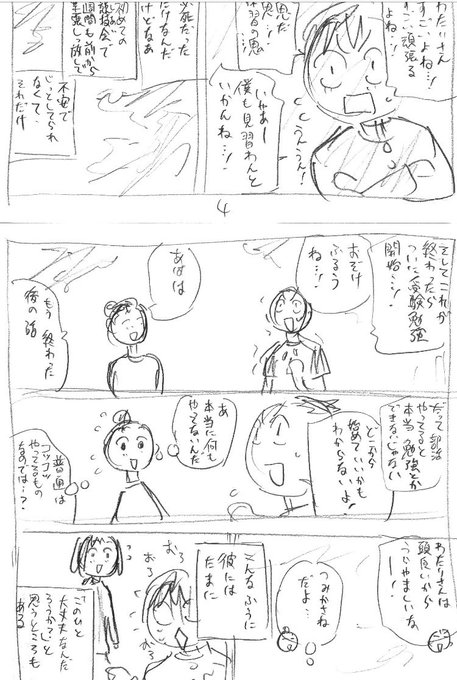 わたりさん
すごいよね…!
すっごい頑張る
よね…!
思だ
思…!
練習の思
いやあー
僕も見習わんと
いかんね…!
うんうん!
必死だった
だけなんだ
けどなあ
初めての
技検会で
1週間も前から
緊張し放して
不安で
じっとしてられ
なくて、
それだけ
4
そしてこれが
終わったら
ついに受験勉強
開始…!
おそけ
ぶるう
ね…!
あはは
もう 終わった
後の話
だって部活
やってると
本当勉強とか
できないじゃない
どこから
始めていいかも
わからないよ!
あ
本当に何も
やってないんだ
普通は
コツコツ
やってるもの
なのでは…?
わたりさんは
頭良いから
うらやましいな
つみかさね
だよ…
こんなふうに
彼には
たまに
おろ
おろ
おろ
「このひと
大丈夫なんだ
ろうか?」と
思うところも
ある